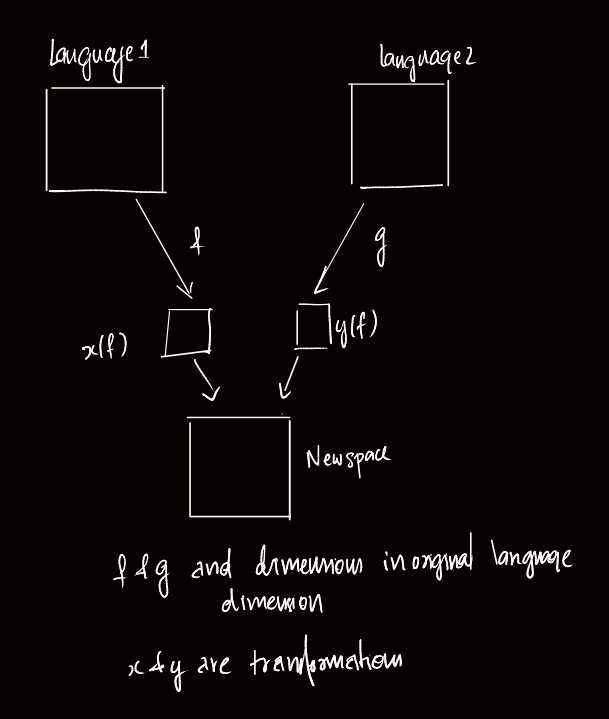 Language1
language2
f
g
x(f)
y(f)
Newspace
f & g and dimennous in original language
dimension
x & y are transformations